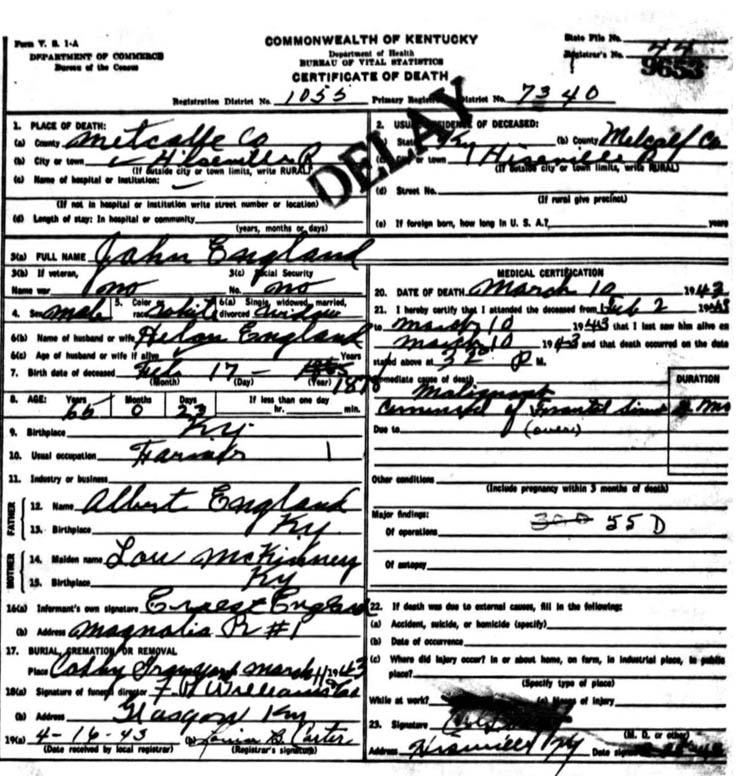 Form V. S. 1-A
DEPARTMENT OF COMMERCE
Bureau of the Census
COMMONWEALTH OF KENTUCKY
Department of Health
BUREAU OF VITAL STATISTICS
CERTIFICATE OF DEATH
State File No.
Registrar's No. 44
9653
Registration District No. 1055 Primary Registration District No. 7340
DELAY
1. PLACE OF DEATH:
(a) County Metcalfe Co
(b) City or town Hiseville R
(If outside city or town limits, write RURAL)
(c) Name of hospital or institution:
(If not in hospital or institution write street number or location)
(d) Length of stay: In hospital or community
(years, months or days)
2. USUAL RESIDENCE OF DECEASED:
State Ky (b) County Metcalf Co
City or town Hiseville R
(If outside city or town limits, write RURAL)
(d) Street No.
(If rural give precinct)
(e) If foreign born, how long in U. S. A.? years
3(a) FULL NAME John England
3(b) If veteran, Name war no
3(c) Social Security No. no
4. Sex male 5. Color or race white 6(a) Single, widowed, married, divorced widow
6(b) Name of husband or wife Helon England
6(c) Age of husband or wife if alive Years
7. Birth date of deceased Feb 17 - 1865 1878
(Month) (Day) (Year)
8. AGE: Years 65 Months 0 Days 23 If less than one day hr. min.
9. Birthplace Ky
10. Usual occupation Farmer 1
11. Industry or business
FATHER
12. Name Albert England
13. Birthplace Ky
MOTHER
14. Maiden name Lou McKinney
15. Birthplace Ky
16(a) Informant's own signature Ernest England
(b) Address Magnolia R #1
17. BURIAL, CREMATION OR REMOVAL
Place Graveyard March 11 1943
18(a) Signature of funeral director
(b) Address Glasgow Ky
19(a) 4-16-43 (b) Carter
(Date received by local registrar) (Registrar's signature)
MEDICAL CERTIFICATION
20. DATE OF DEATH March 10 1943
21. I hereby certify that I attended the deceased from Feb 2 1943
to March 10 1943 that I last saw him alive on
March 10 1943 and that death occurred on the date
stated above at 3 P M.
Immediate cause of death
DURATION
Malignant
of Frontal Sinus Mos
Due to (over)
Other conditions
(Include pregnancy within 3 months of death)
Major findings:
Of operations 55 D
Of autopsy
22. If death was due to external causes, fill in the following:
(a) Accident, suicide, or homicide (specify)
(b) Date of occurrence
(c) Where did injury occur? In or about home, on farm, in industrial place, in public place?
(Specify type of place)
While at work? (e) Means of injury
23. Signature
(M. D. or other)
Address Hiseville Ky Date signed